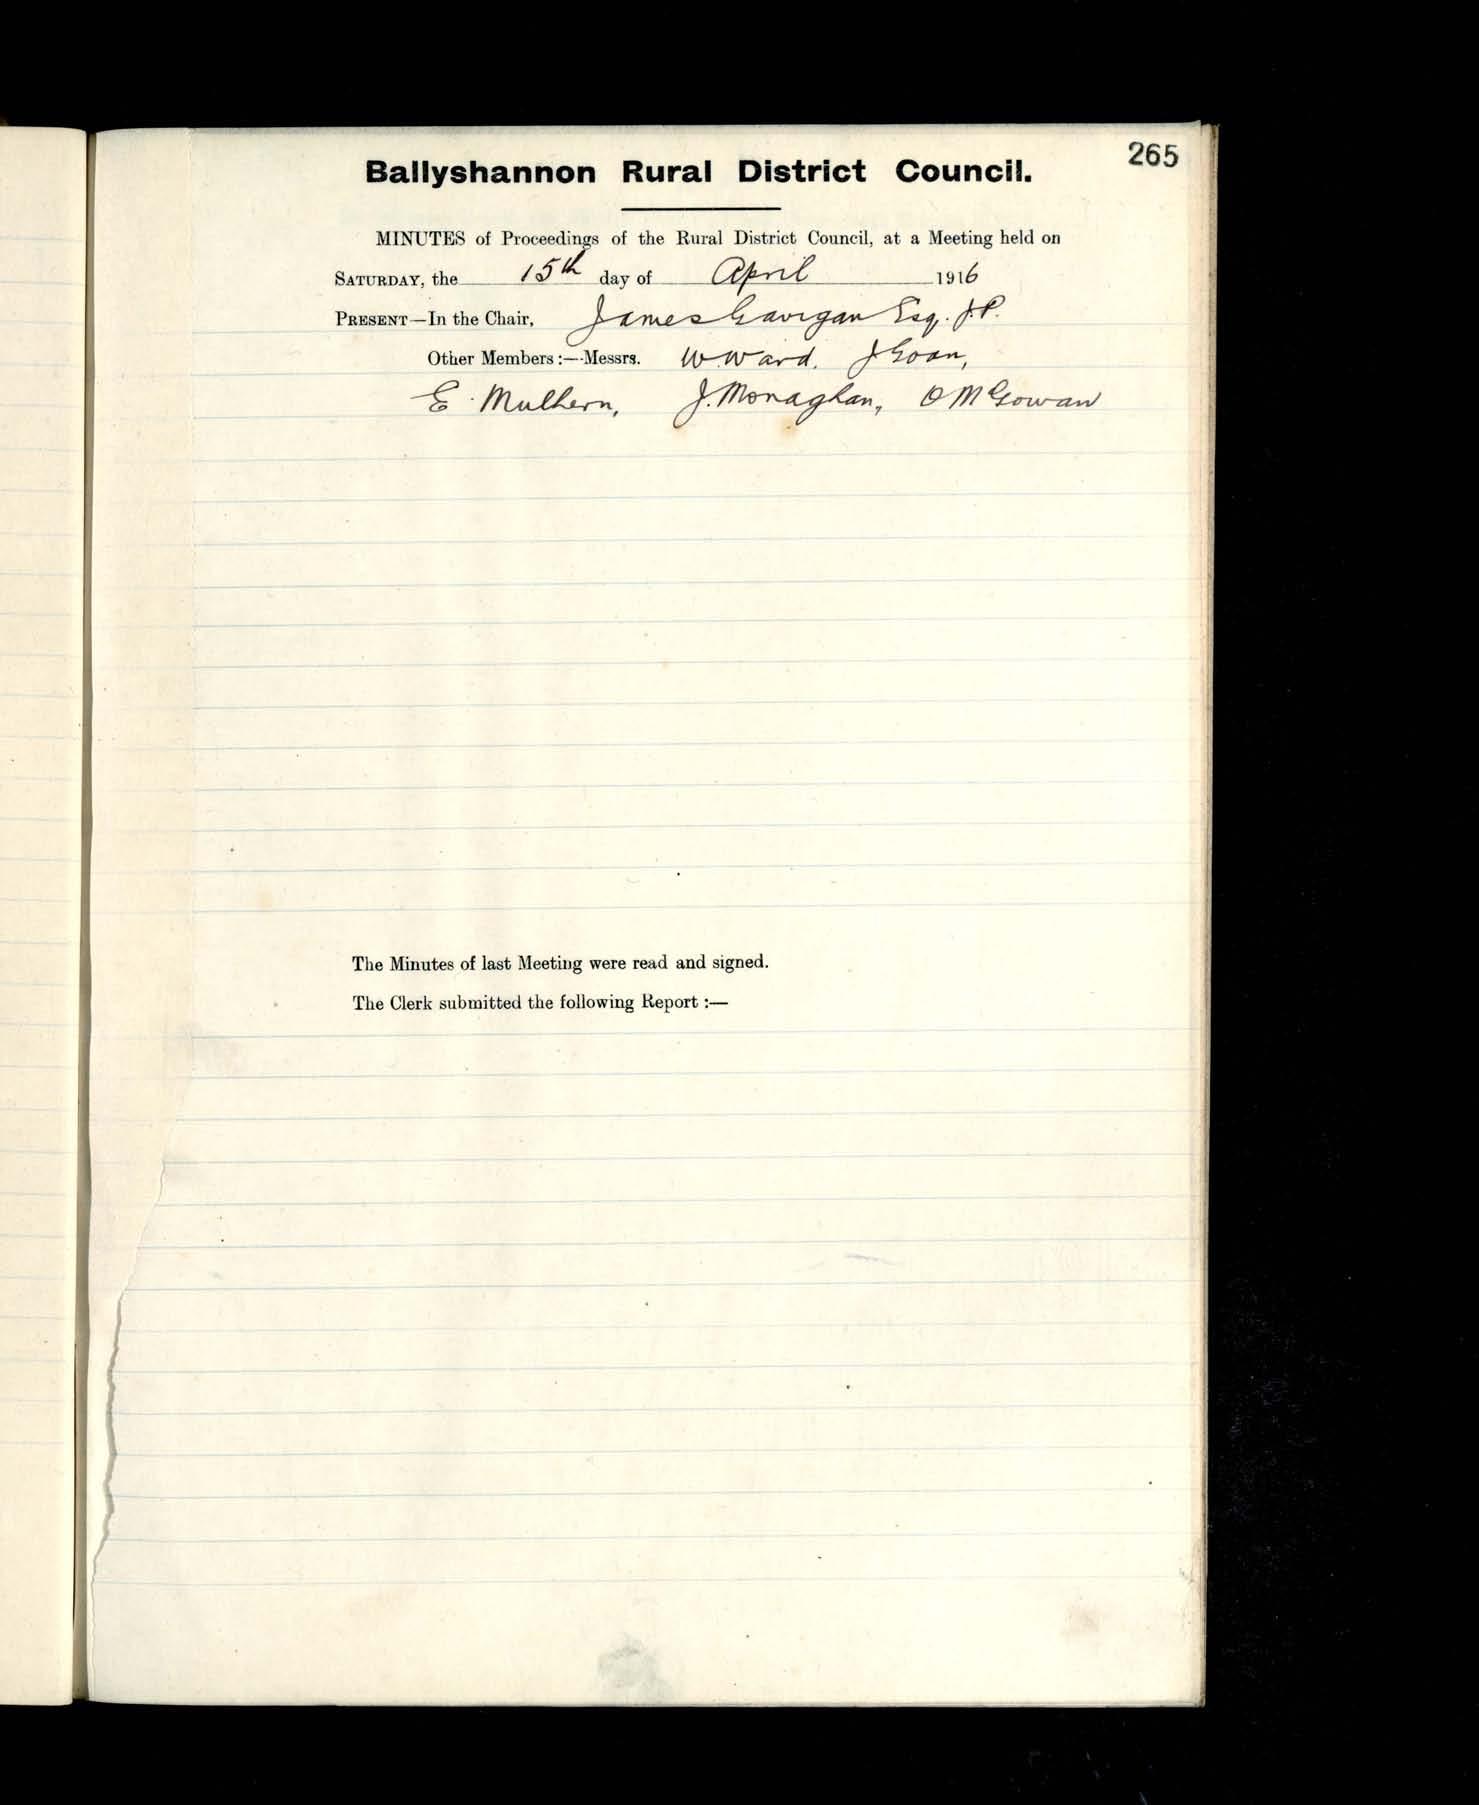 265
Ballyshannon Rural District Council.
MINUTES of Proceedings of the Rural District Council, at a Meeting held on
SATURDAY, the 15th day of April 1916
PRESENT—In the Chair, James Gavigan Esq. J.P.
Other Members:—Messrs. W. Ward. J Goan,
E. Mulhern, J. Monaghan, O McGowan
The Minutes of last Meeting were read and signed.
The Clerk submitted the following Report :—